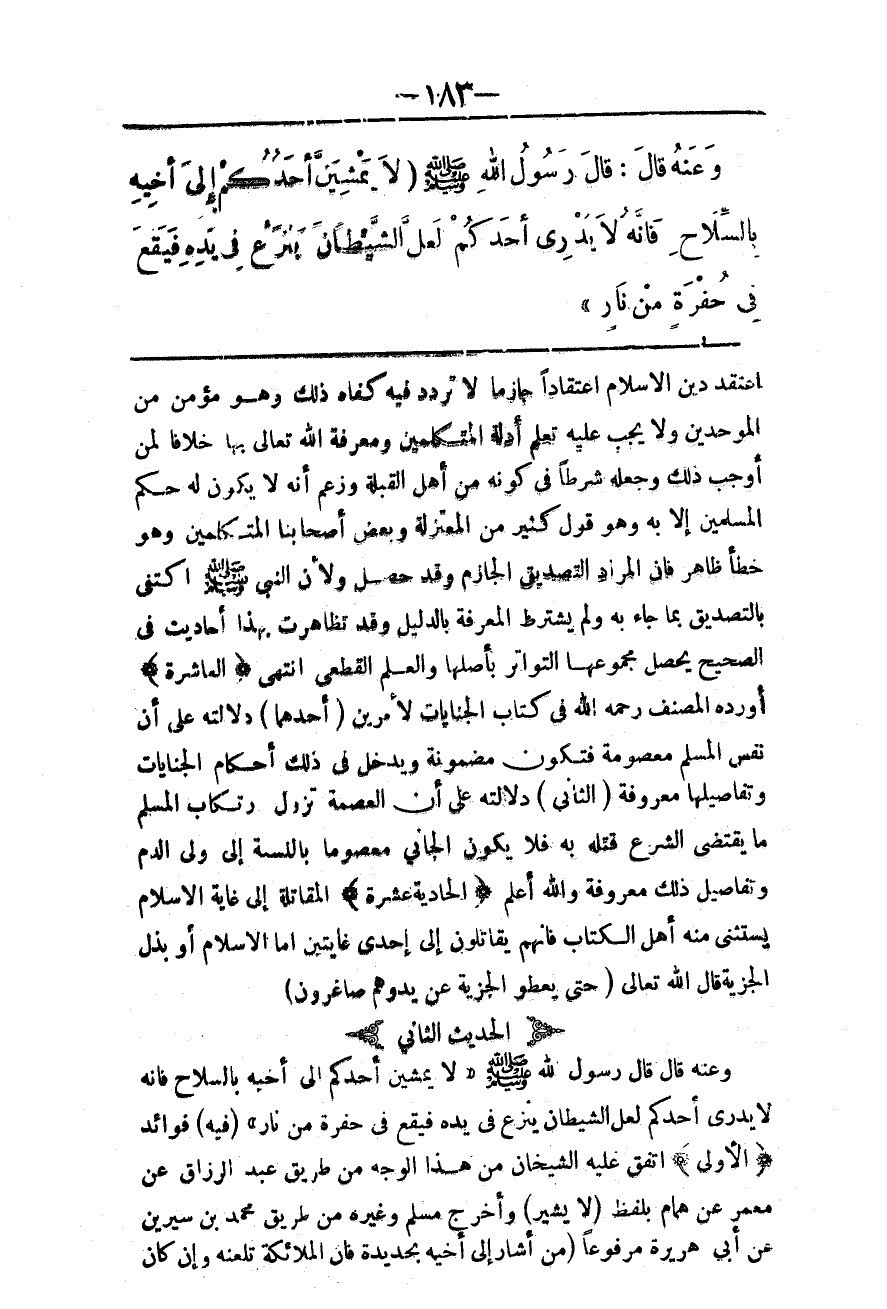 —١٨٣—
وَعَنْهُ قالَ : قالَ رَسُولُ اللهِ ﷺ ( لاَ يَمْشِيَنَّ أحَدُكُمْ إِلىَ أخِيهِ
بِالسِّلَاحِ فَانَّهُ لاَ يَدْرِى أحَدكُمْ لَعلَّ الشَّيْطانَ يَنْزَعُ فِى يَدِهِ فَيَقَعَ
فِى حُفْرَةٍ مِنْ نَارٍ »
اعتقد دين الاسلام اعتقاداً جازما لا تردد فيه كفاه ذلك وهو مؤمن من
الموحدين ولا يجب عليه تعلم أدلة المتكلمين ومعرفة الله تعالى بها خلافا لمن
أوجب ذلك وجعله شرطاً فى كونه من أهل القبلة وزعم أنه لا يكون له حكم
المسلمين إلا به وهو قول كثير من المعتزلة وبعض أصحابنا المتكلمين وهو
خطأ ظاهر فان المراد التصديق الجازم وقد حصل ولأن النبي ﷺ اكتفى
بالتصديق بما جاء به ولم يشترط المعرفة بالدليل وقد تظاهرت بهذا أحاديث فى
الصحيح يحصل مجموعها التواتر بأصلها والعلم القطعي انتهى ﴿ العاشرة ﴾
أورده المصنف رحمه الله فى كتاب الجنايات لأمرين ( أحدهما ) دلالته على أن
نفس المسلم معصومة فتكون مضمونة ويدخل فى ذلك أحكام الجنايات
وتفاصيلها معروفة ( الثاني ) دلالته على أن العصمة تزول رتكاب المسلم
ما يقتضى الشرع قتله به فلا يكون الجاني معصوما بالنسبة إلى ولى الدم
وتفاصيل ذلك معروفة والله أعلم ﴿ الحادية عشرة ﴾ المقاتلة إلى غاية الاسلام
يستثنى منه أهل الكتاب فانهم يقاتلون إلى إحدى غايتين اما الاسلام أو بذل
الجزية قال الله تعالى ( حتى يعطو الجزية عن يدوهم صاغرون )
الحديث الثاني
وعنه قال قال رسول لله ﷺ « لا يمشين أحدكم الى أخيه بالسلاح فانه
لا يدرى أحدكم لعل الشيطان ينزع فى يده فيقع فى حفرة من نار » (فيه) فوائد
﴿ الأولى ﴾ اتفق عليه الشيخان من هذا الوجه من طريق عبد الرزاق عن
معمر عن همام بلفظ (لا يشير) وأخرج مسلم وغيره من طريق محمد بن سيرين
عن أبي هريرة مرفوعاً (من أشار إلى أخيه بحديدة فان الملائكة تلعنه وإن كان